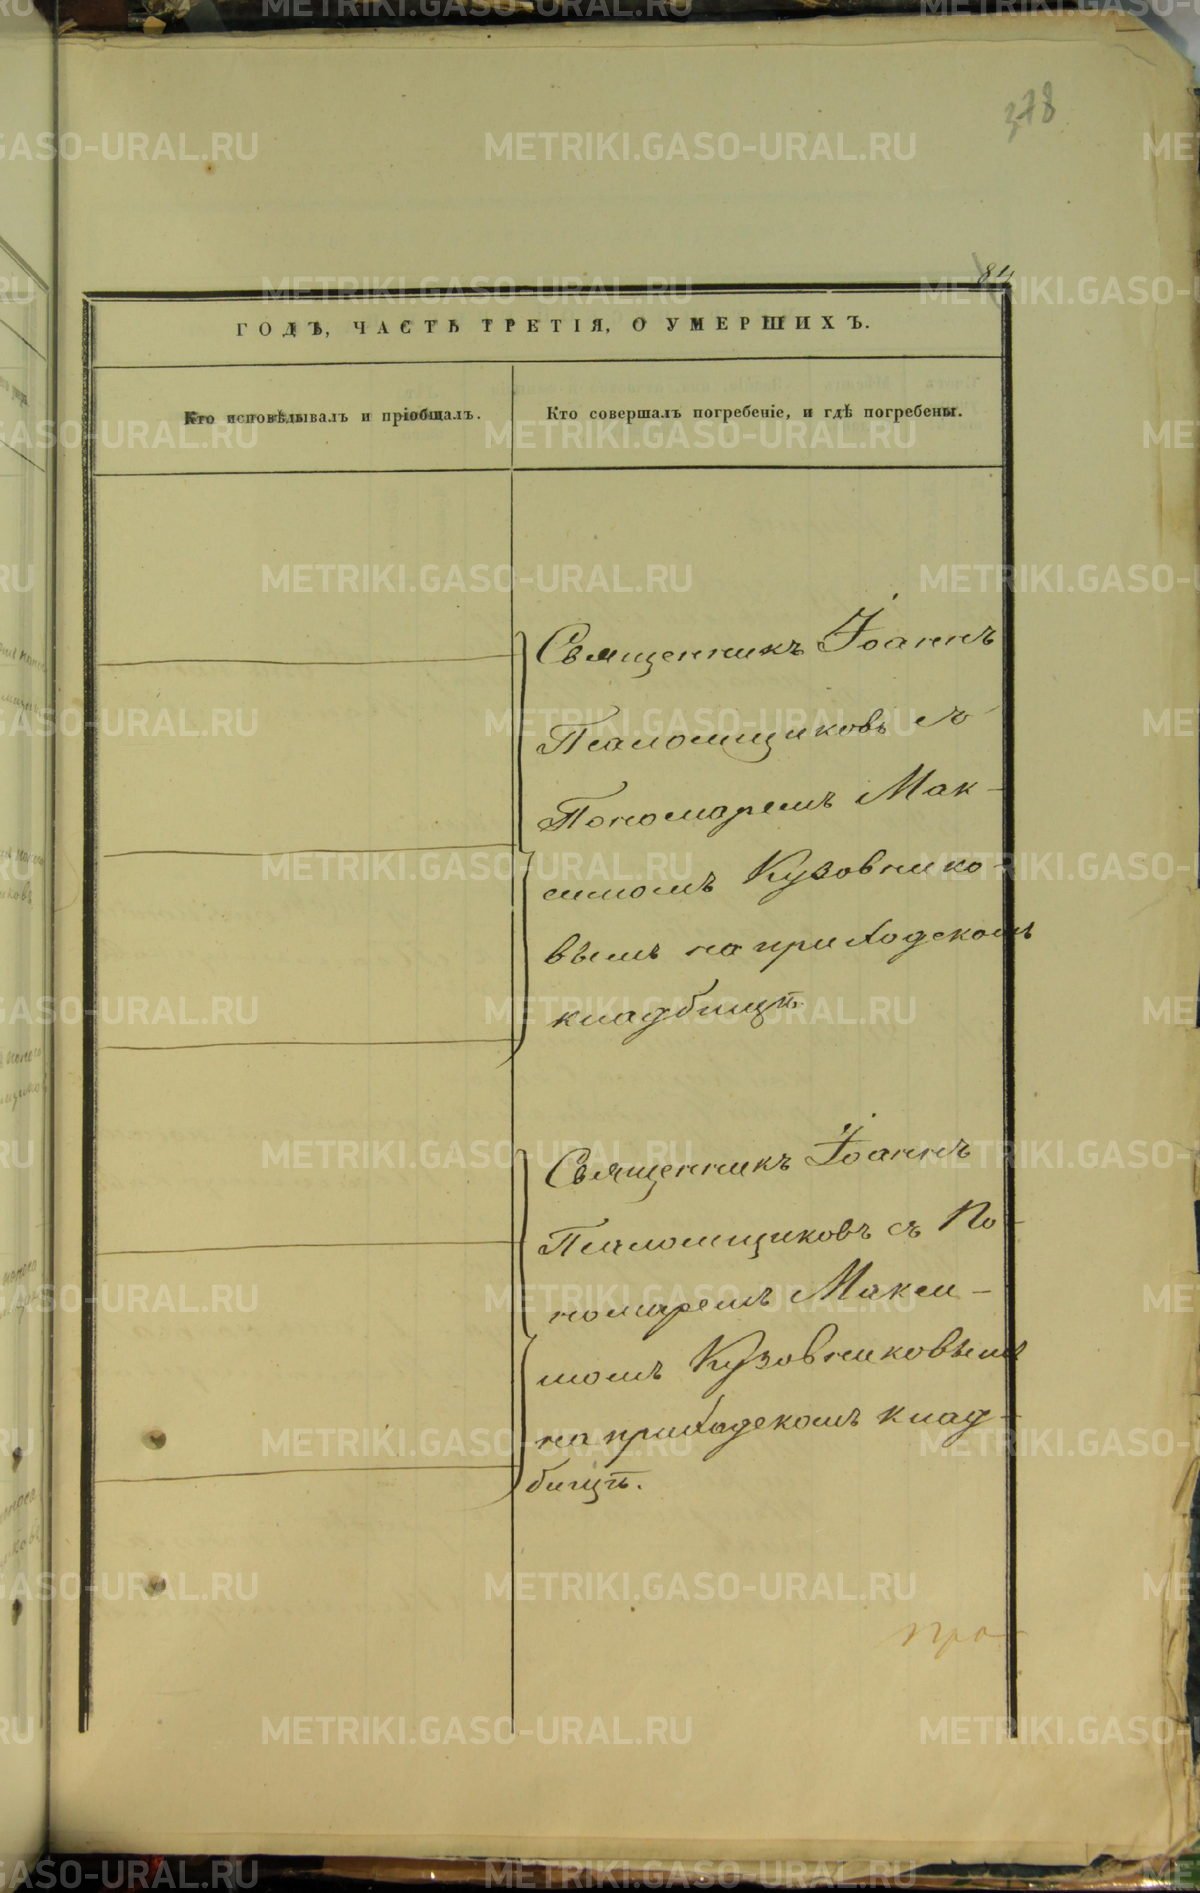 378
84
ГОДЪ, ЧАСТЬ ТРЕТІЯ, О УМЕРШИХЪ.
Кто исповѣдывалъ и пріобщалъ.
Кто совершалъ погребеніе, и гдѣ погребены.
Священникъ Іоаннъ
Псаломщиковъ съ
Пономаремъ Мак-
симомъ Кузовнико-
вымъ на приходскомъ
кладбищѣ.
Священникъ Іоаннъ
Псаломщиковъ съ По-
номаремъ Макси-
момъ Кузовниковымъ
на приходскомъ клад-
бищѣ.
METRIKI.GASO-URAL.RU